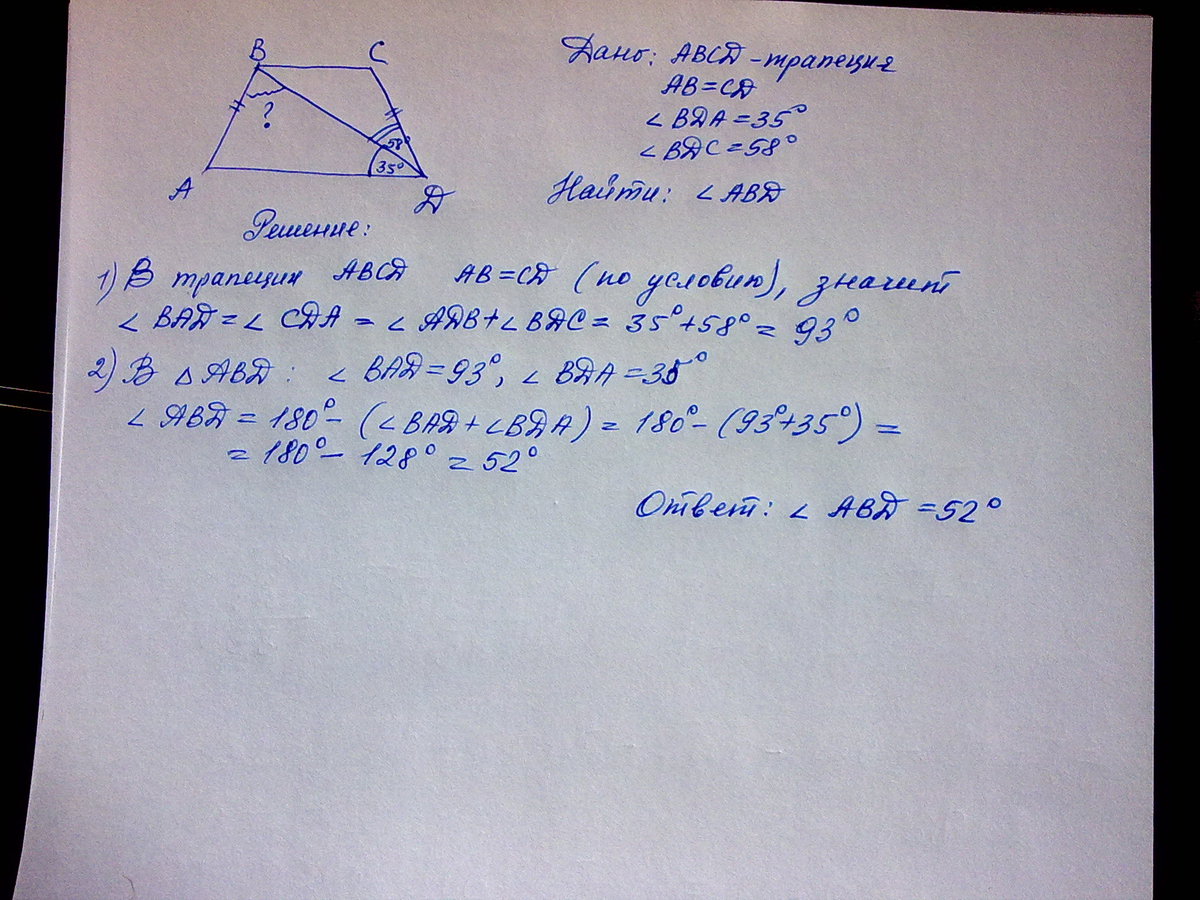 B C
Дано: ABCD - трапеция
AB = CD
∠ BDA = 35°
∠ BDC = 58°
?
58°
35°
A
D
Найти: ∠ ABD
Решение:
1) В трапеции ABCD AB = CD (по условию), значит
∠ BAD = ∠ CDA = ∠ ADB + ∠ BDC = 35° + 58° = 93°
2) В △ ABD : ∠ BAD = 93°, ∠ BDA = 35°
∠ ABD = 180° - (∠ BAD + ∠ BDA) = 180° - (93° + 35°) =
= 180° - 128° = 52°
Ответ: ∠ ABD = 52°